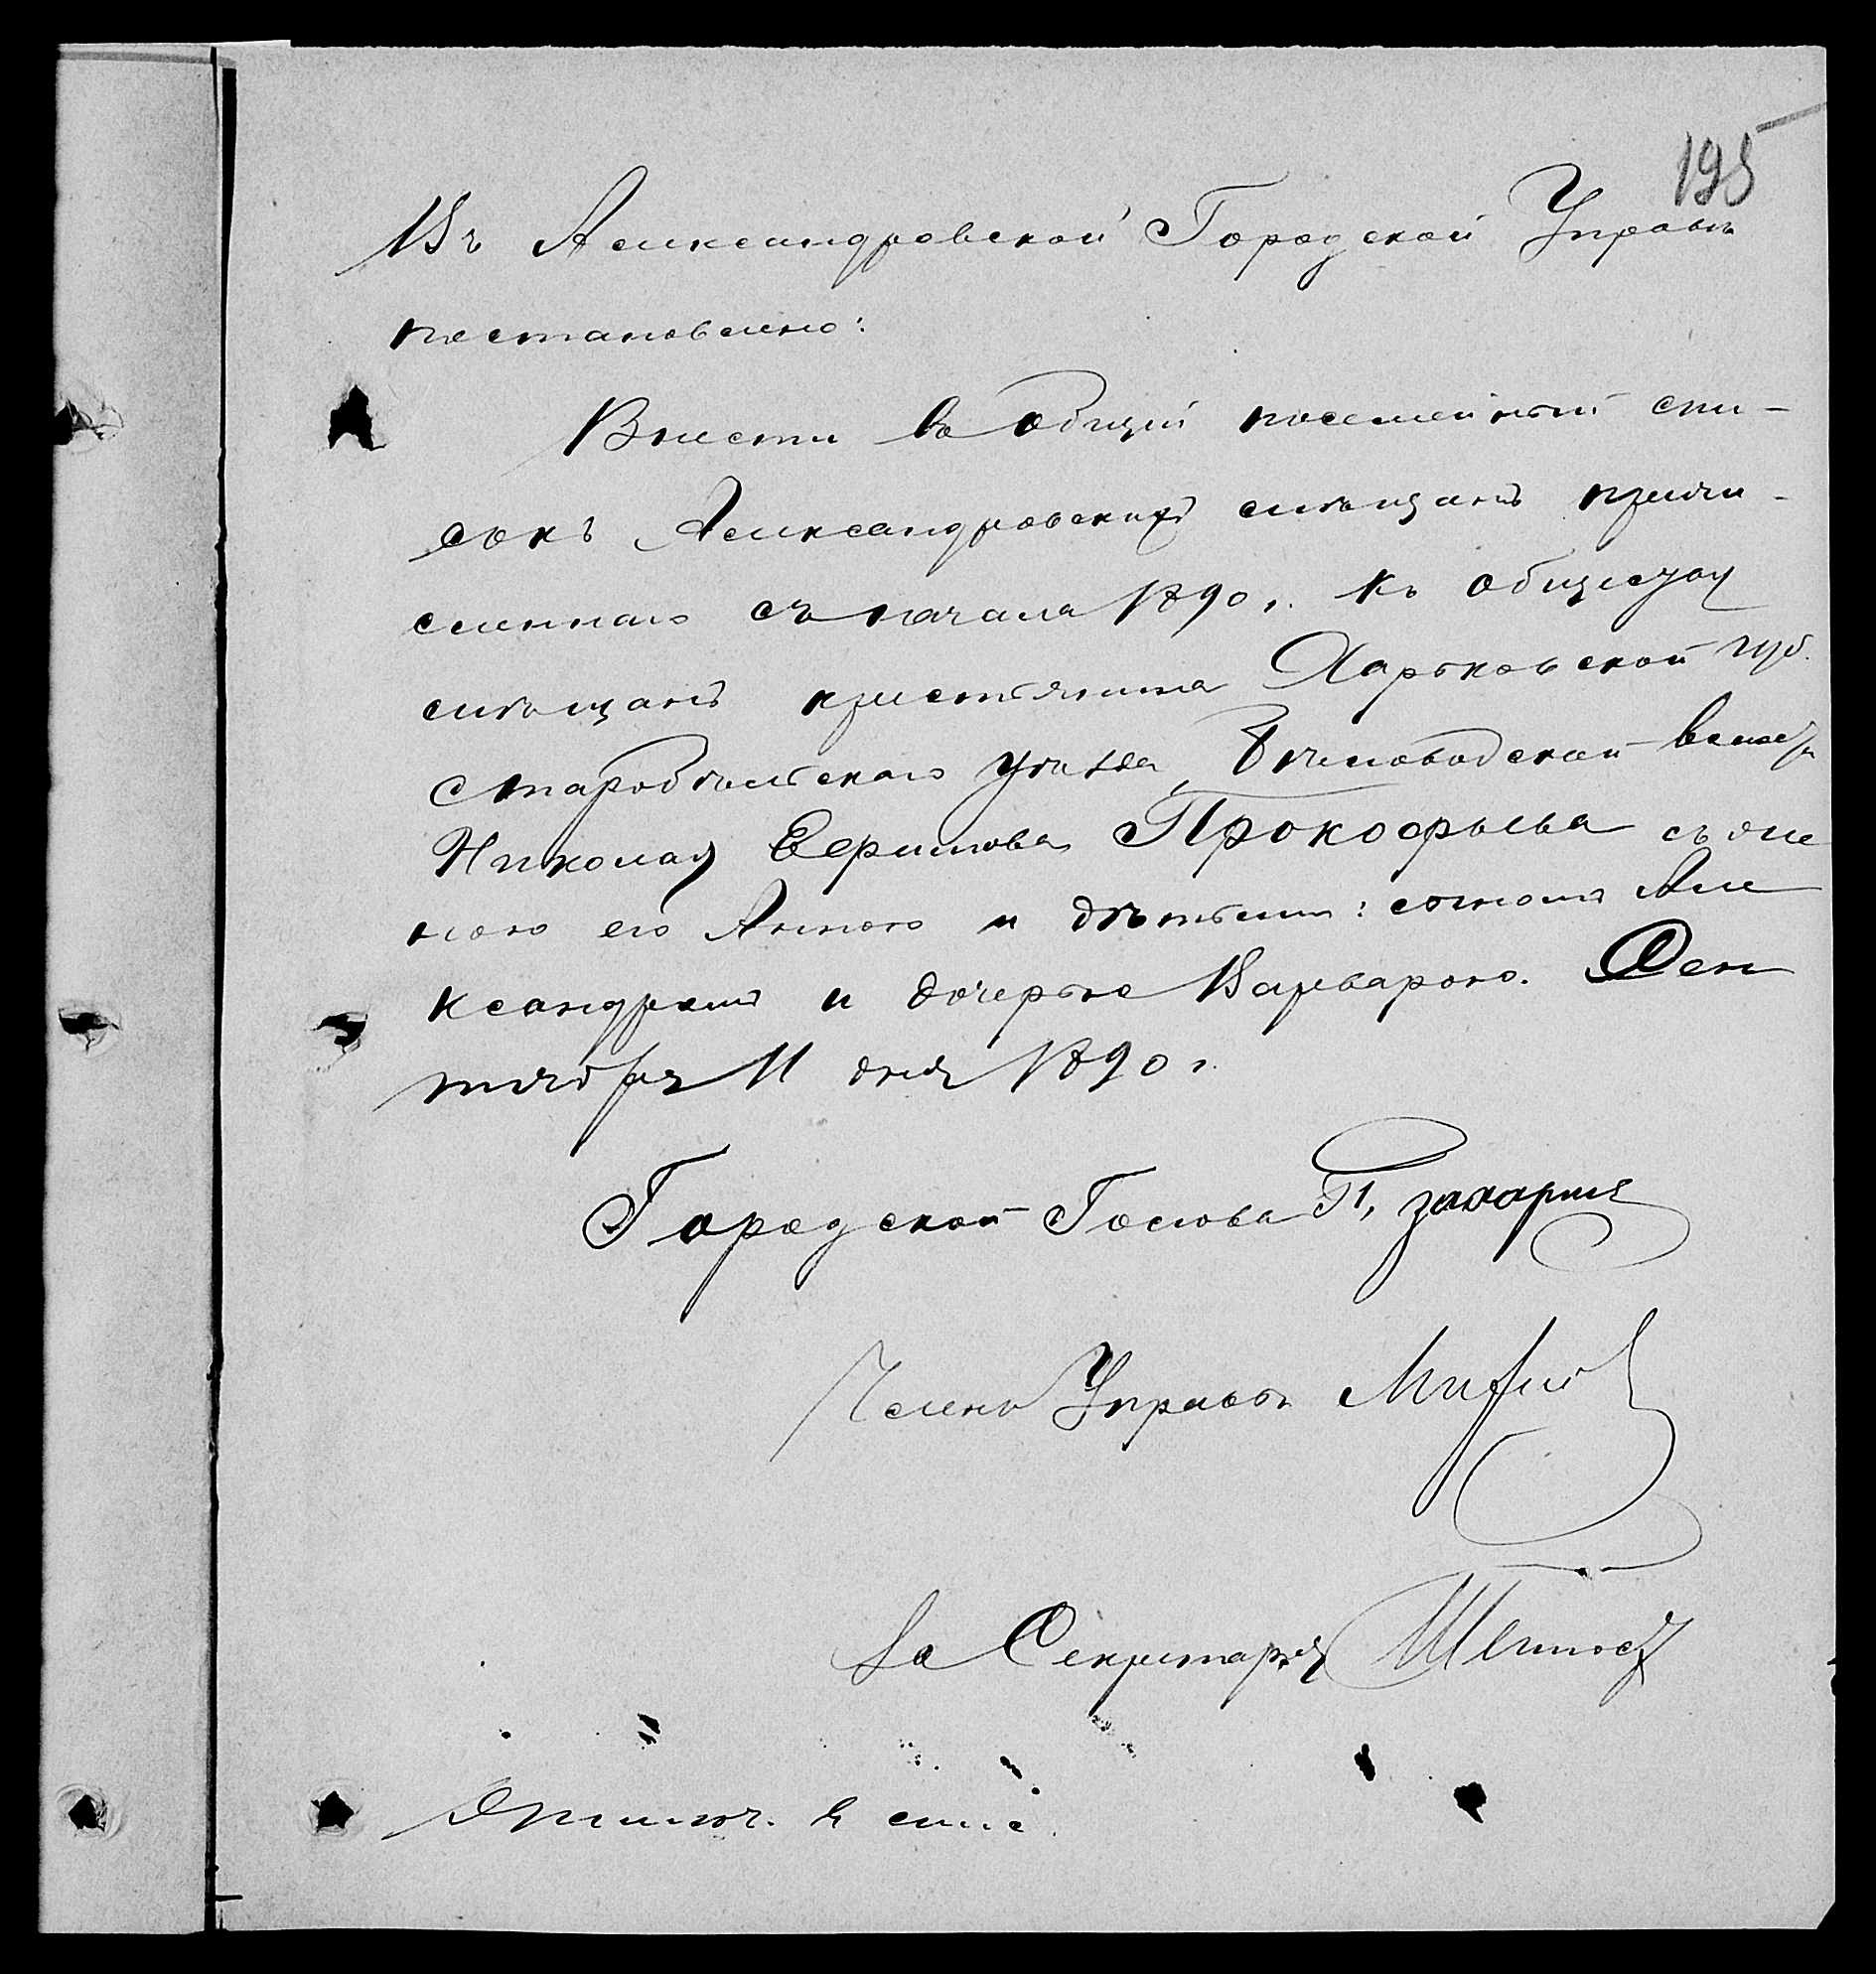 195
Въ Александровской Городской Управѣ
постановлено:
Внести въ общій посемейный спи-
сокъ Александровскихъ мѣщанъ причи-
сленнаго съ начала 1890 г. къ обществу
мѣщанъ крестьянина Харьковской губ.
Старобѣльскаго уѣзда, Бѣловодской волости
Николая Ефимова Прокофьева съ же
ною его Анною и дѣтьми: сыномъ Але
ксандромъ и дочерью Варварою. Сен
тября 11 дня 1890 г.
Городской Голова П. Захарин
Членъ Управы
За Секретаря